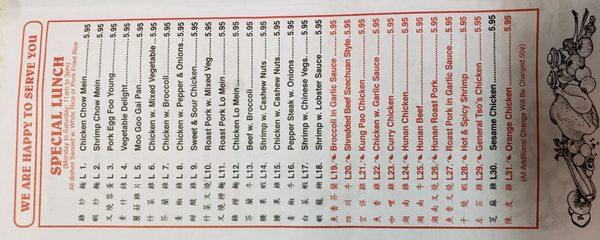 WE ARE HAPPY TO SERVE YOU
SPECIAL LUNCH
(Monday to Saturday: 11am to 3pm)
All dishes Served w. White Rice or Pork Fried Rice
雞 炒 麵 L 1. Chicken Chow Mein 5.95
蝦 炒 麵 L 2. Shrimp Chow Mein 5.95
叉 燒 蓉 蛋 L 3. Pork Egg Foo Young 5.95
素 什 錦 L 4. Vegetable Delight 5.95
蘑 菇 雞 片 L 5. Moo Goo Gai Pan 5.95
什 菜 雞 L 6. Chicken w. Mixed Vegetable 5.95
芥 蘭 雞 L 7. Chicken w. Broccoli 5.95
青 椒 雞 L 8. Chicken w. Pepper & Onions 5.95
甜 酸 雞 L 9. Sweet & Sour Chicken 5.95
什 菜 叉 燒 L10. Roast Pork w. Mixed Veg. 5.95
叉 燒 撈 麵 L11. Roast Pork Lo Mein 5.95
雞 撈 麵 L12. Chicken Lo Mein 5.95
芥 蘭 牛 L13. Beef w. Broccoli 5.95
腰 果 蝦 L14. Shrimp w. Cashew Nuts 5.95
腰 果 雞 L15. Chicken w. Cashew Nuts 5.95
青 椒 牛 L16. Pepper Steak w. Onions 5.95
白 菜 蝦 L17. Shrimp w. Chinese Vegs. 5.95
蝦 龍 糊 L18. Shrimp w. Lobster Sauce 5.95
魚 香 芥 蘭 L19. Broccoli in Garlic Sauce 5.95
四 川 牛 L20. Shredded Beef Szechuan Style 5.95
宮 保 雞 L21. Kung Pao Chicken 5.95
魚 香 雞 L22. Chicken w. Garlic Sauce 5.95
咖 喱 雞 L23. Curry Chicken 5.95
湖 南 雞 L24. Hunan Chicken 5.95
湖 南 牛 L25. Hunan Beef 5.95
湖 南 叉 燒 L26. Hunan Roast Pork 5.95
魚 香 叉 燒 L27. Roast Pork in Garlic Sauce 5.95
干 燒 蝦 L28. Hot & Spicy Shrimp 5.95
左 宗 雞 L29. General Tso's Chicken 5.95
芝 麻 雞 L30. Sesame Chicken 5.95
陳 皮 雞 L31. Orange Chicken 5.95
(All Additional Change Will Be Charged 50¢)